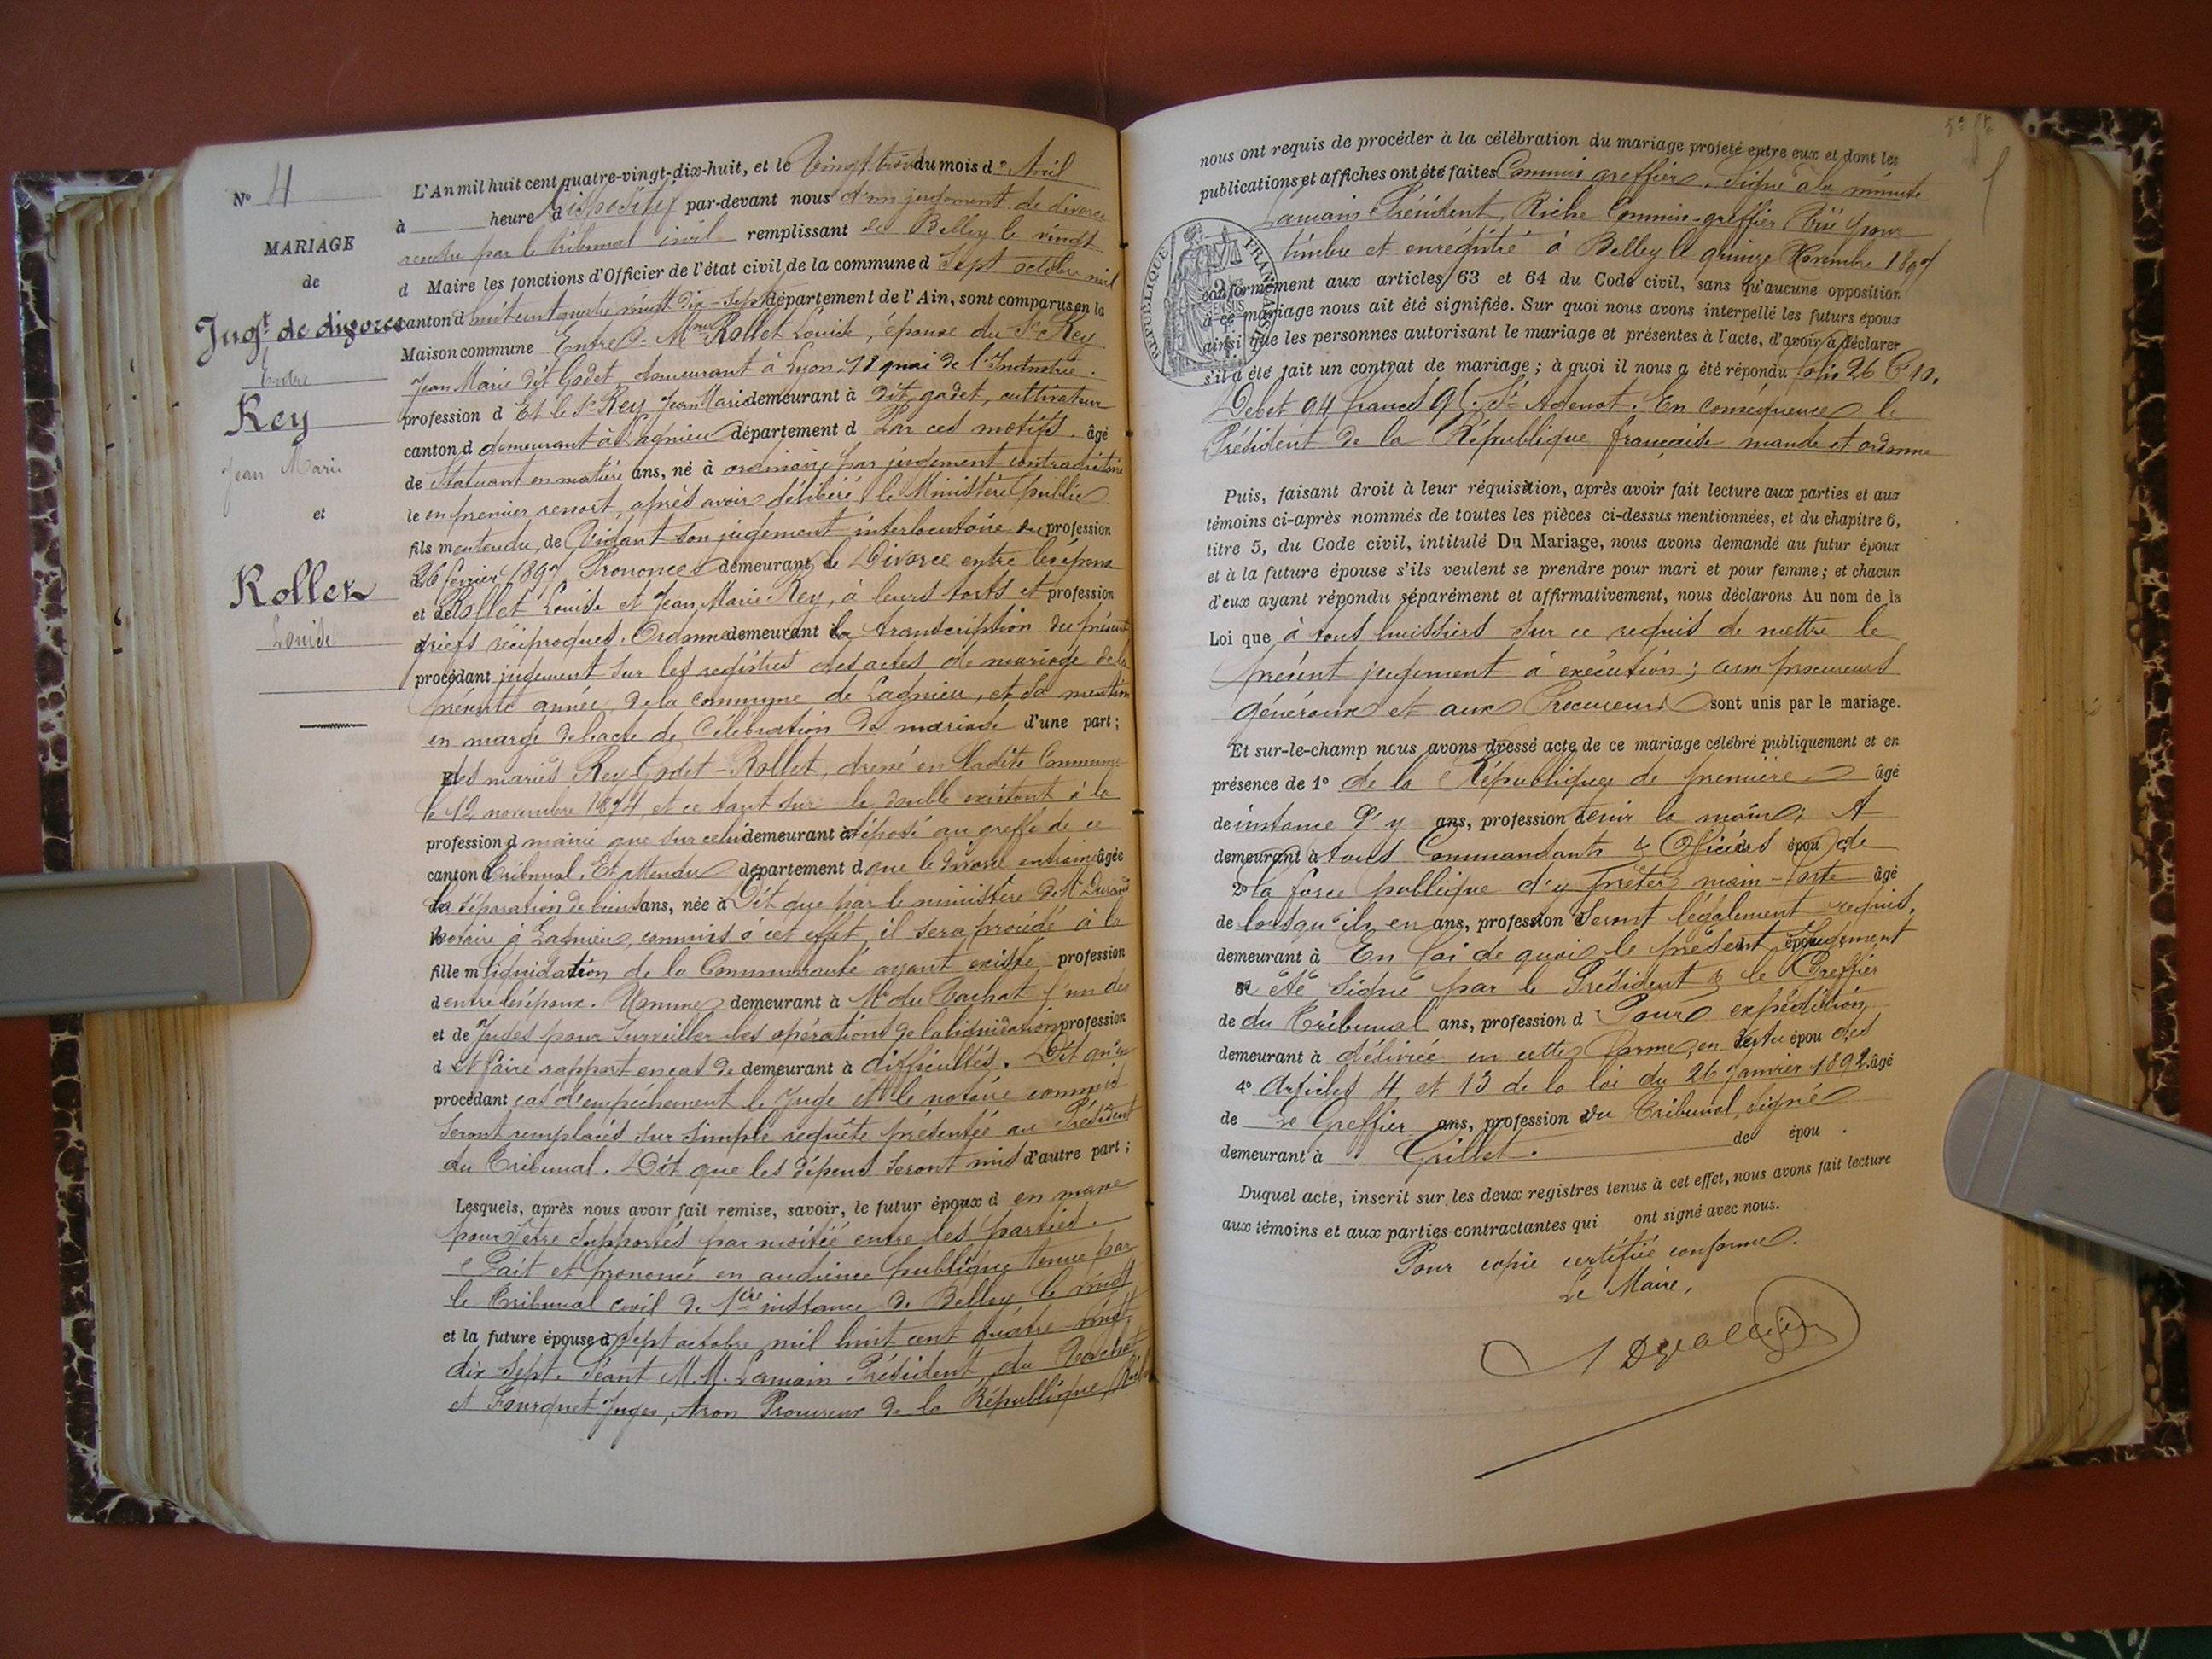 N° 4
MARIAGE
de
Jugt de divorce
Entre
Rey
Jean Marie
et
Rollet
Louise
L'An mil huit cent quatre-vingt-dix-huit, et le Vingt trois du mois d'Avril
à heure d Dispositif par-devant nous d'un jugement de divorce
rendu par le tribunal civil remplissant de Belley le vingt
d Maire les fonctions d'Officier de l'état civil de la commune d Sept octobre mil
canton d huit cent quatre vingt dix-sept département de l'Ain, sont comparus en la
Maison commune Entre De Mme Rollet Louise, épouse du Sr Rey
Jean Marie dit Godet, demeurant à Lyon, 78 quai de l'Industrie.
profession d Et le Sr Rey Jean Marie demeurant à dit godet, cultivateur
canton d demeurant à Lagnieu département d Par ces motifs. âgé
de Statuant en matière ans, né à ordinaire par jugement contradictoire
le en premier ressort, après avoir délibéré, le Ministère public
fils m entendu, de Vidant son jugement interlocutoire du profession
26 février 1897 Prononce demeurant le Divorce entre les époux
et de Rollet Louise et Jean Marie Rey, à leurs torts et profession
d griefs réciproques. Ordonne demeurant à la transcription du présent
procédant jugement sur les registres des actes de mariage de la
présente année, de la commune de Lagnieu, et sa mention
en marge de l'acte de Célébration de mariage d'une part;
Et des mariés Rey Godet-Rollet, dressé en ladite Commune
le 12 novembre 1874, et ce tant sur le double existant à la
profession d mairie que sur celui demeurant à déposé au greffe de ce
canton Tribunal. Et attendu département d que le divorce entraine âgée
de la séparation de biens ans, née à Dit que par le ministère de Me Durand
Notaire à Lagnieu, commis à cet effet, il sera procédé à la
fille m liquidation, de la Communauté ayant existé profession
d entre les époux. Nomme demeurant à Mr du Vachat l'un des
et de Juges pour surveiller les opérations de la liquidation profession
d et faire rapport en cas de demeurant à difficultés. Dit qu'en
procédant cas d'empêchement le Juge et le notaire commis
seront remplacés sur simple requête présentée au Président
du Tribunal. Dit que les dépens seront mis d'autre part;
Lesquels, après nous avoir fait remise, savoir, le futur époux d en masse
pour être supportés par moitié entre les parties.
Fait et prononcé en audience publique tenue par
le Tribunal civil de 1ère instance de Belley le vingt
et la future épouse d Sept octobre mil huit cent quatre-vingt
dix sept. Séant M.M. Lamain Président, du Vachat
et Fourquet Juges, Aron Procureur de la République,
nous ont requis de procéder à la célébration du mariage projeté entre eux et dont les
publications et affiches ont été faites Commis greffier. Signé à la minute
Lamain Président, Riche Commis-greffier Visé pour
timbre et enregistré à Belley le quinze Novembre 1897
conformément aux articles 63 et 64 du Code civil, sans qu'aucune opposition
à ce mariage nous ait été signifiée. Sur quoi nous avons interpellé les futurs époux
ainsi que les personnes autorisant le mariage et présentes à l'acte, d'avoir à déclarer
s'il a été fait un contrat de mariage; à quoi il nous a été répondu folio 26 C 10.
Debet 94 francs 95. St Adenot. En conséquence le
Président de la République française mande et ordonne
Puis, faisant droit à leur réquisition, après avoir fait lecture aux parties et aux
témoins ci-après nommés de toutes les pièces ci-dessus mentionnées, et du chapitre 6,
titre 5, du Code civil, intitulé Du Mariage, nous avons demandé au futur époux
et à la future épouse s'ils veulent se prendre pour mari et pour femme; et chacun
d'eux ayant répondu séparément et affirmativement, nous déclarons Au nom de la
Loi que à tous huissiers sur ce requis de mettre le
présent jugement à exécution; aux procureurs
généraux et aux Procureurs sont unis par le mariage.
Et sur-le-champ nous avons dressé acte de ce mariage célébré publiquement et en
présence de 1° de la République de première âgé
de instance d'y ans, profession d tenir la main; A
demeurant à tous Commandants & Officiers épou de
2° la force publique d'y prêter main-forte âgé
de lorsqu'ils en ans, profession d seront légalement requis.
demeurant à En foi de quoi le présent épou jugement
3° a été signé par le Président & le Greffier
de du Tribunal ans, profession d Pour expédition
demeurant à délivrée en cette forme, en vertu épou des
4° Articles 4 et 13 de la loi du 26 Janvier 1892. âgé
de Le Greffier ans, profession du Tribunal, signé
demeurant à Grillet. de épou .
Duquel acte, inscrit sur les deux registres tenus à cet effet, nous avons fait lecture
aux témoins et aux parties contractantes qui ont signé avec nous.
Pour copie certifiée conforme.
Le Maire,
RÉPUBLIQUE FRANÇAISE